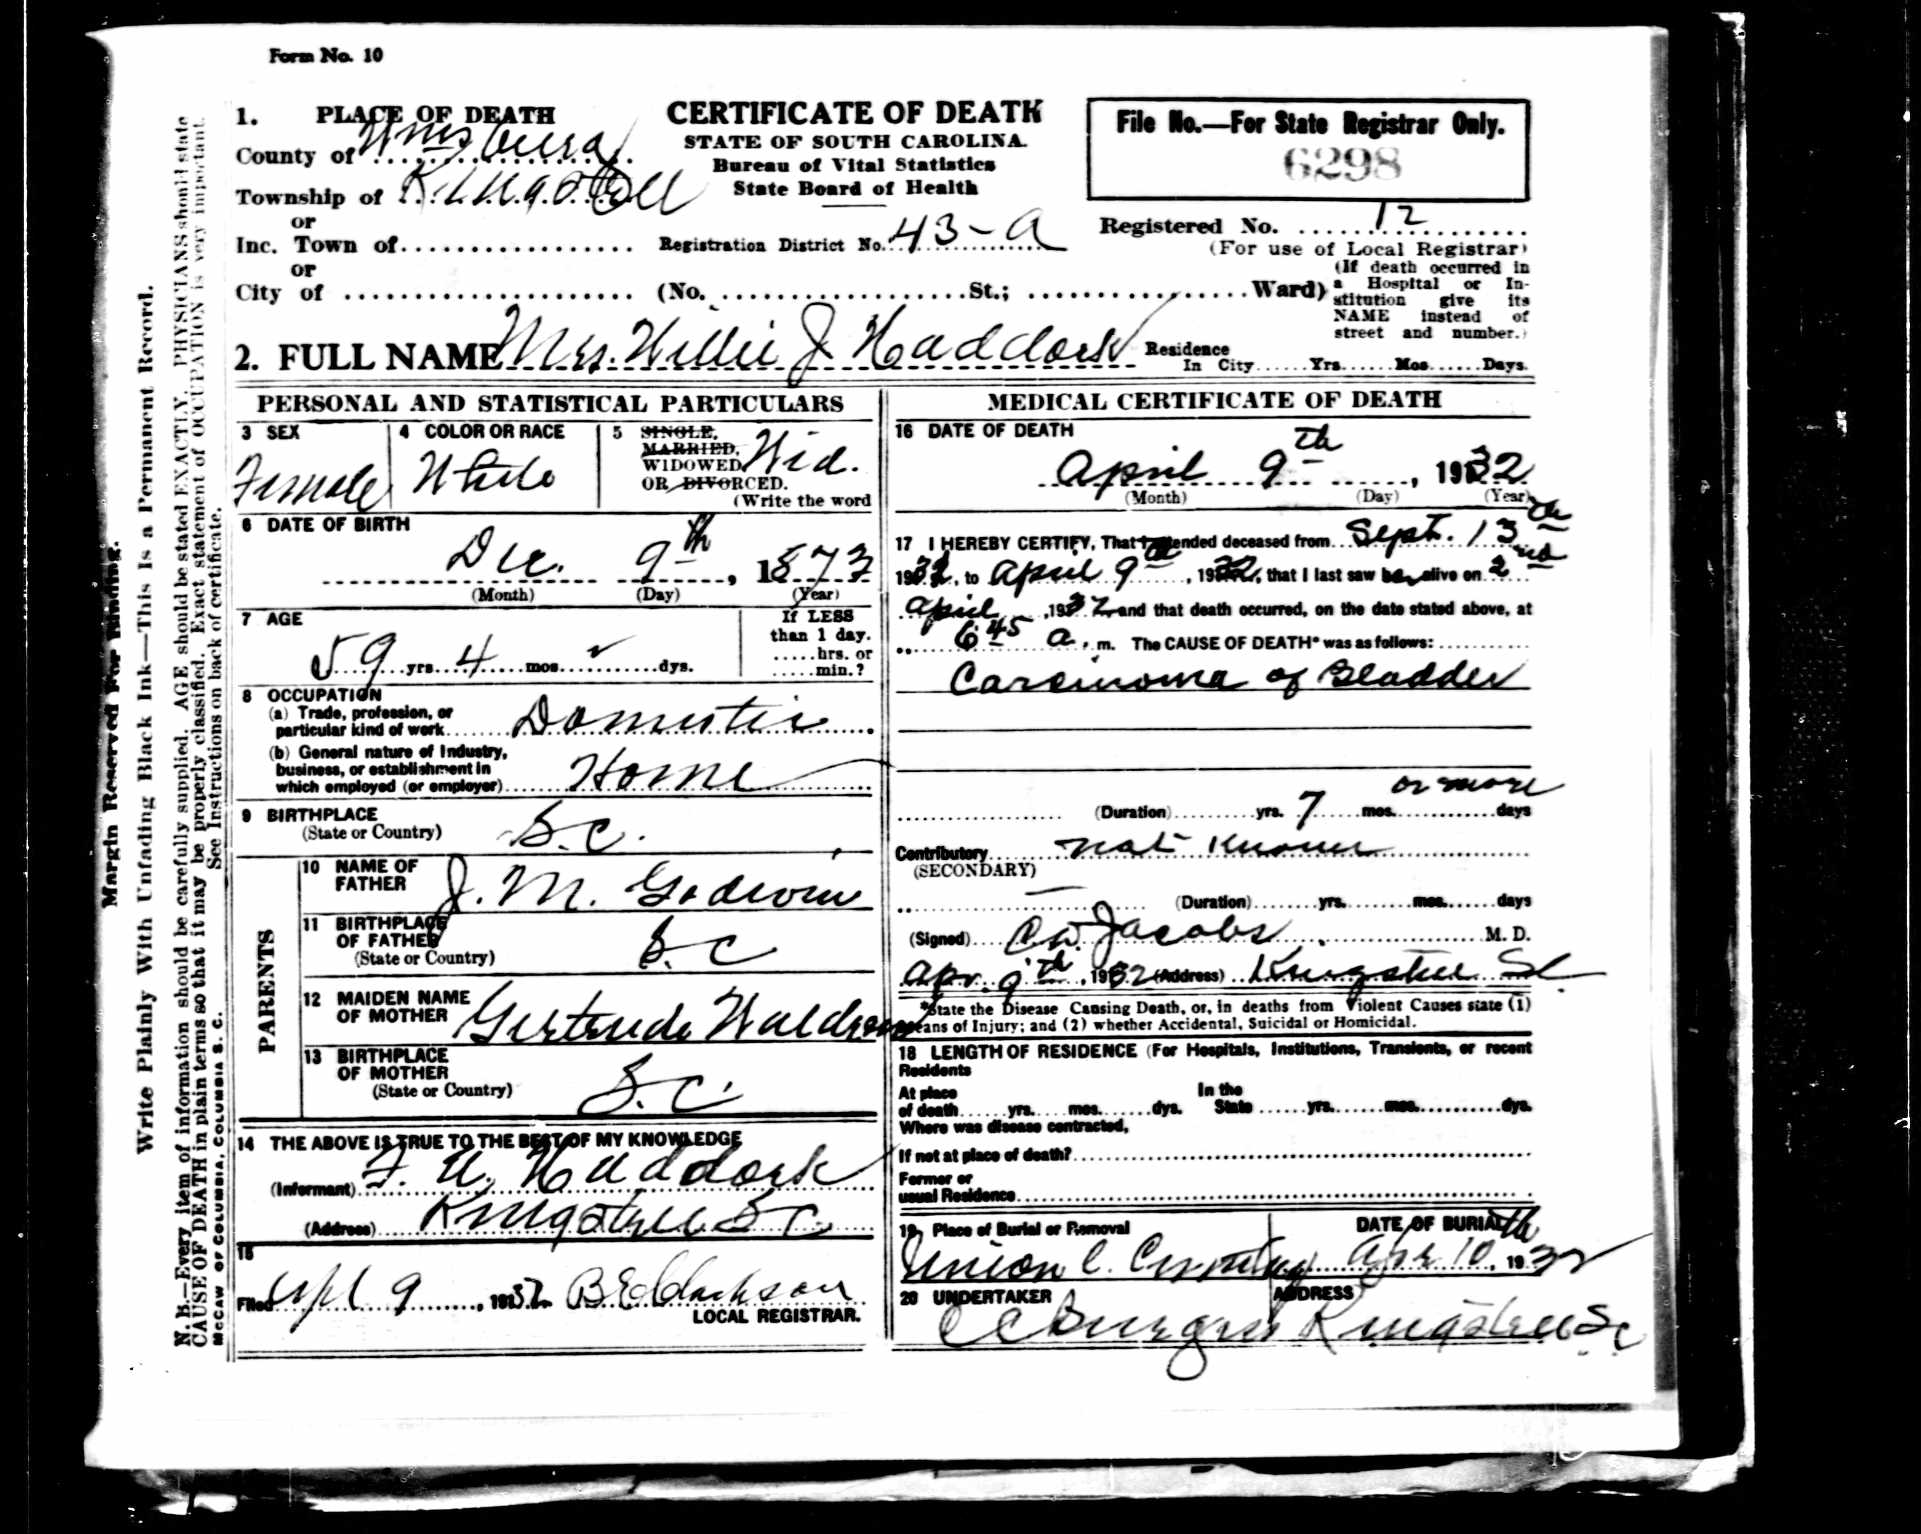 Form No. 10
1. PLACE OF DEATH
County of Wmsburg
Township of Kingstree
or
Inc. Town of
or
City of (No. St.; Ward)
CERTIFICATE OF DEATH
STATE OF SOUTH CAROLINA.
Bureau of Vital Statistics
State Board of Health
Registration District No. 43-A
File No.—For State Registrar Only.
6298
Registered No. 12
(For use of Local Registrar)
(If death occurred in
a Hospital or In-
stitution give its
NAME instead of
street and number.)
2. FULL NAME Mrs. Willie J Haddock
Residence
In City Yrs. Mos. Days.
PERSONAL AND STATISTICAL PARTICULARS
3 SEX
Female
4 COLOR OR RACE
White
5 SINGLE,
MARRIED,
WIDOWED, Wid.
OR DIVORCED.
(Write the word
6 DATE OF BIRTH
Dec. 9th, 1873
(Month) (Day) (Year)
7 AGE
59 yrs. 4 mos. dys.
If LESS
than 1 day.
hrs. or
min.?
8 OCCUPATION
(a) Trade, profession, or
particular kind of work Domestic
(b) General nature of Industry,
business, or establishment in
which employed (or employer) Home
9 BIRTHPLACE
(State or Country) S.C.
PARENTS
10 NAME OF
FATHER J. M. Godwin
11 BIRTHPLACE
OF FATHER
(State or Country) S.C
12 MAIDEN NAME
OF MOTHER Gertrude Waldron
13 BIRTHPLACE
OF MOTHER
(State or Country) S.C.
14 THE ABOVE IS TRUE TO THE BEST OF MY KNOWLEDGE
(Informant) F. U. Haddock
(Address) Kingstree S C
15
Filed Apl 9, 1932 B E Clarkson
LOCAL REGISTRAR.
MEDICAL CERTIFICATE OF DEATH
16 DATE OF DEATH
April 9th, 1932
(Month) (Day) (Year)
17 I HEREBY CERTIFY, That I attended deceased from Sept. 13th
193, to April 9th, 1932, that I last saw her alive on 2nd
April, 1932 and that death occurred, on the date stated above, at
6 45 a. m. The CAUSE OF DEATH* was as follows:
Carcinoma of Bladder
or more
(Duration) yrs. 7 mos. days
Contributory Not Known
(SECONDARY)
(Duration) yrs. mos. days
(Signed) C W Jacobs M. D.
Apr. 9th, 1932 (Address) Kingstree SC
*State the Disease Causing Death, or, in deaths from Violent Causes state (1)
Means of Injury; and (2) whether Accidental, Suicidal or Homicidal.
18 LENGTH OF RESIDENCE (For Hospitals, Institutions, Transients, or recent
Residents
At place In the
of death yrs. mos. dys. State yrs. mos. dys.
Where was disease contracted,
If not at place of death?
Former or
usual Residence
19 Place of Burial or Removal DATE OF BURIAL
Union C. Cemetery Apr 10th, 1932
20 UNDERTAKER ADDRESS
C C Burgess Kingstree SC
Margin Reserved For Binding.
Write Plainly With Unfading Black Ink—This Is a Permanent Record.
N. B.—Every item of information should be carefully supplied. AGE should be stated EXACTLY. PHYSICIANS should state
CAUSE OF DEATH in plain terms so that it may be properly classified. Exact statement of OCCUPATION is very important.
See Instructions on back of certificate.
McCAW OF COLUMBIA, COLUMBIA S. C.